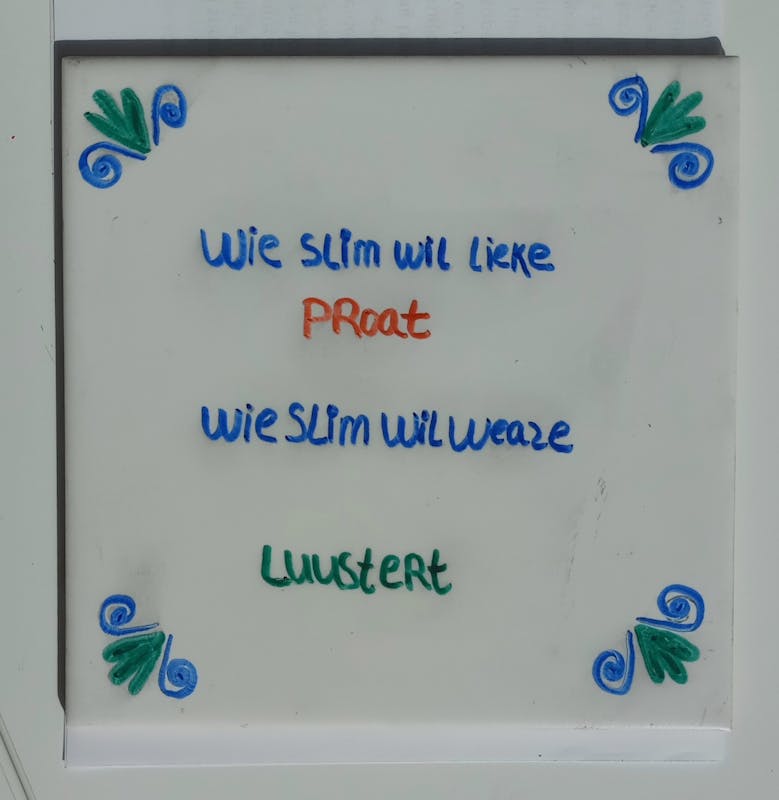 Wie slim wil lieke
PRoat
Wie slim wil weaze
Luustert